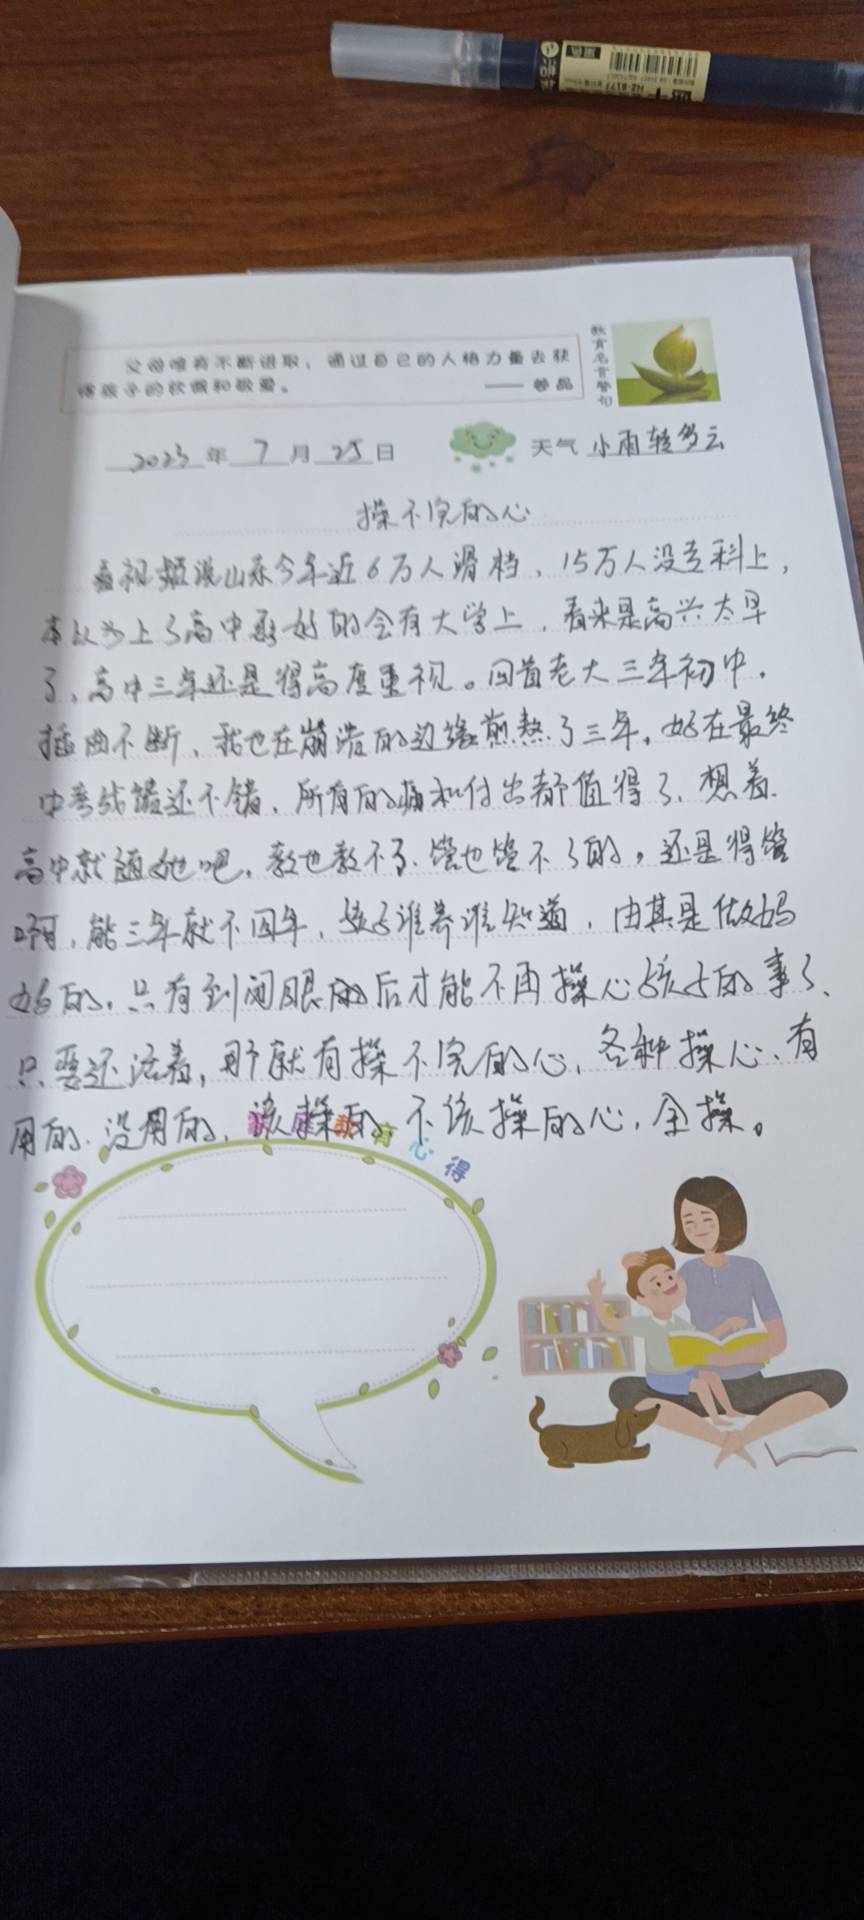 父母唯有不断进取，通过自己的人格力量去获
得孩子的钦佩和敬爱。
教育名言警句
2023年7月25日
天气 小雨转多云
操不完的心
看视频说山东今年近6万人滑档、15万人没专科上，
本以为上了高中最好的会有大学上，看来是高兴太早
了，高中三年还是得高度重视。回首老大三年初中，
插曲不断、我也在崩溃的边缘煎熬了三年。好在最终
中考成绩还不错、所有的痛和付出都值得了、想着
高中就随她吧，教也教不了、管也管不了的，还是得管
啊，能三年就不四年、孩子谁养谁知道，由其是做妈
妈的，只有到闭眼的后才能不再操心孩子的事了、
只要还活着，那就有操不完的心，各种操心、有
用的、没用的、该操的、不该操的心，全操。
家庭教育心得